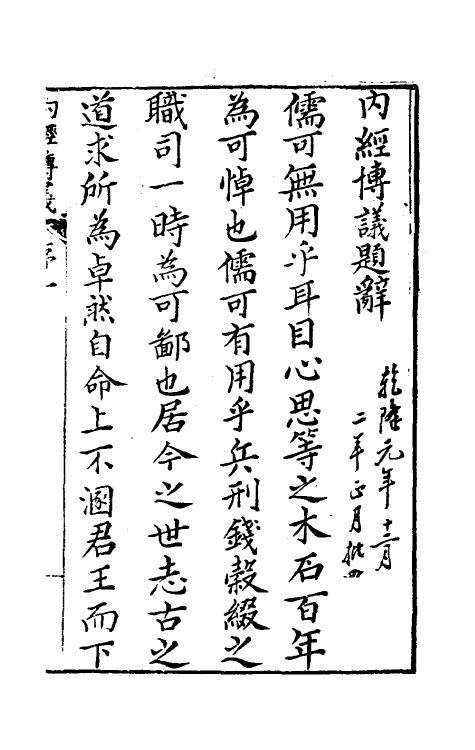 內經博議題辭
乾隆元年十二月
二年正月批
儒可無用乎耳目心思等之木石百年
為可悼也儒可有用乎兵刑錢穀綴之
職司一時為可鄙也居今之世志古之
道求所為卓然自命上不溷君王而下
內經博議 序一